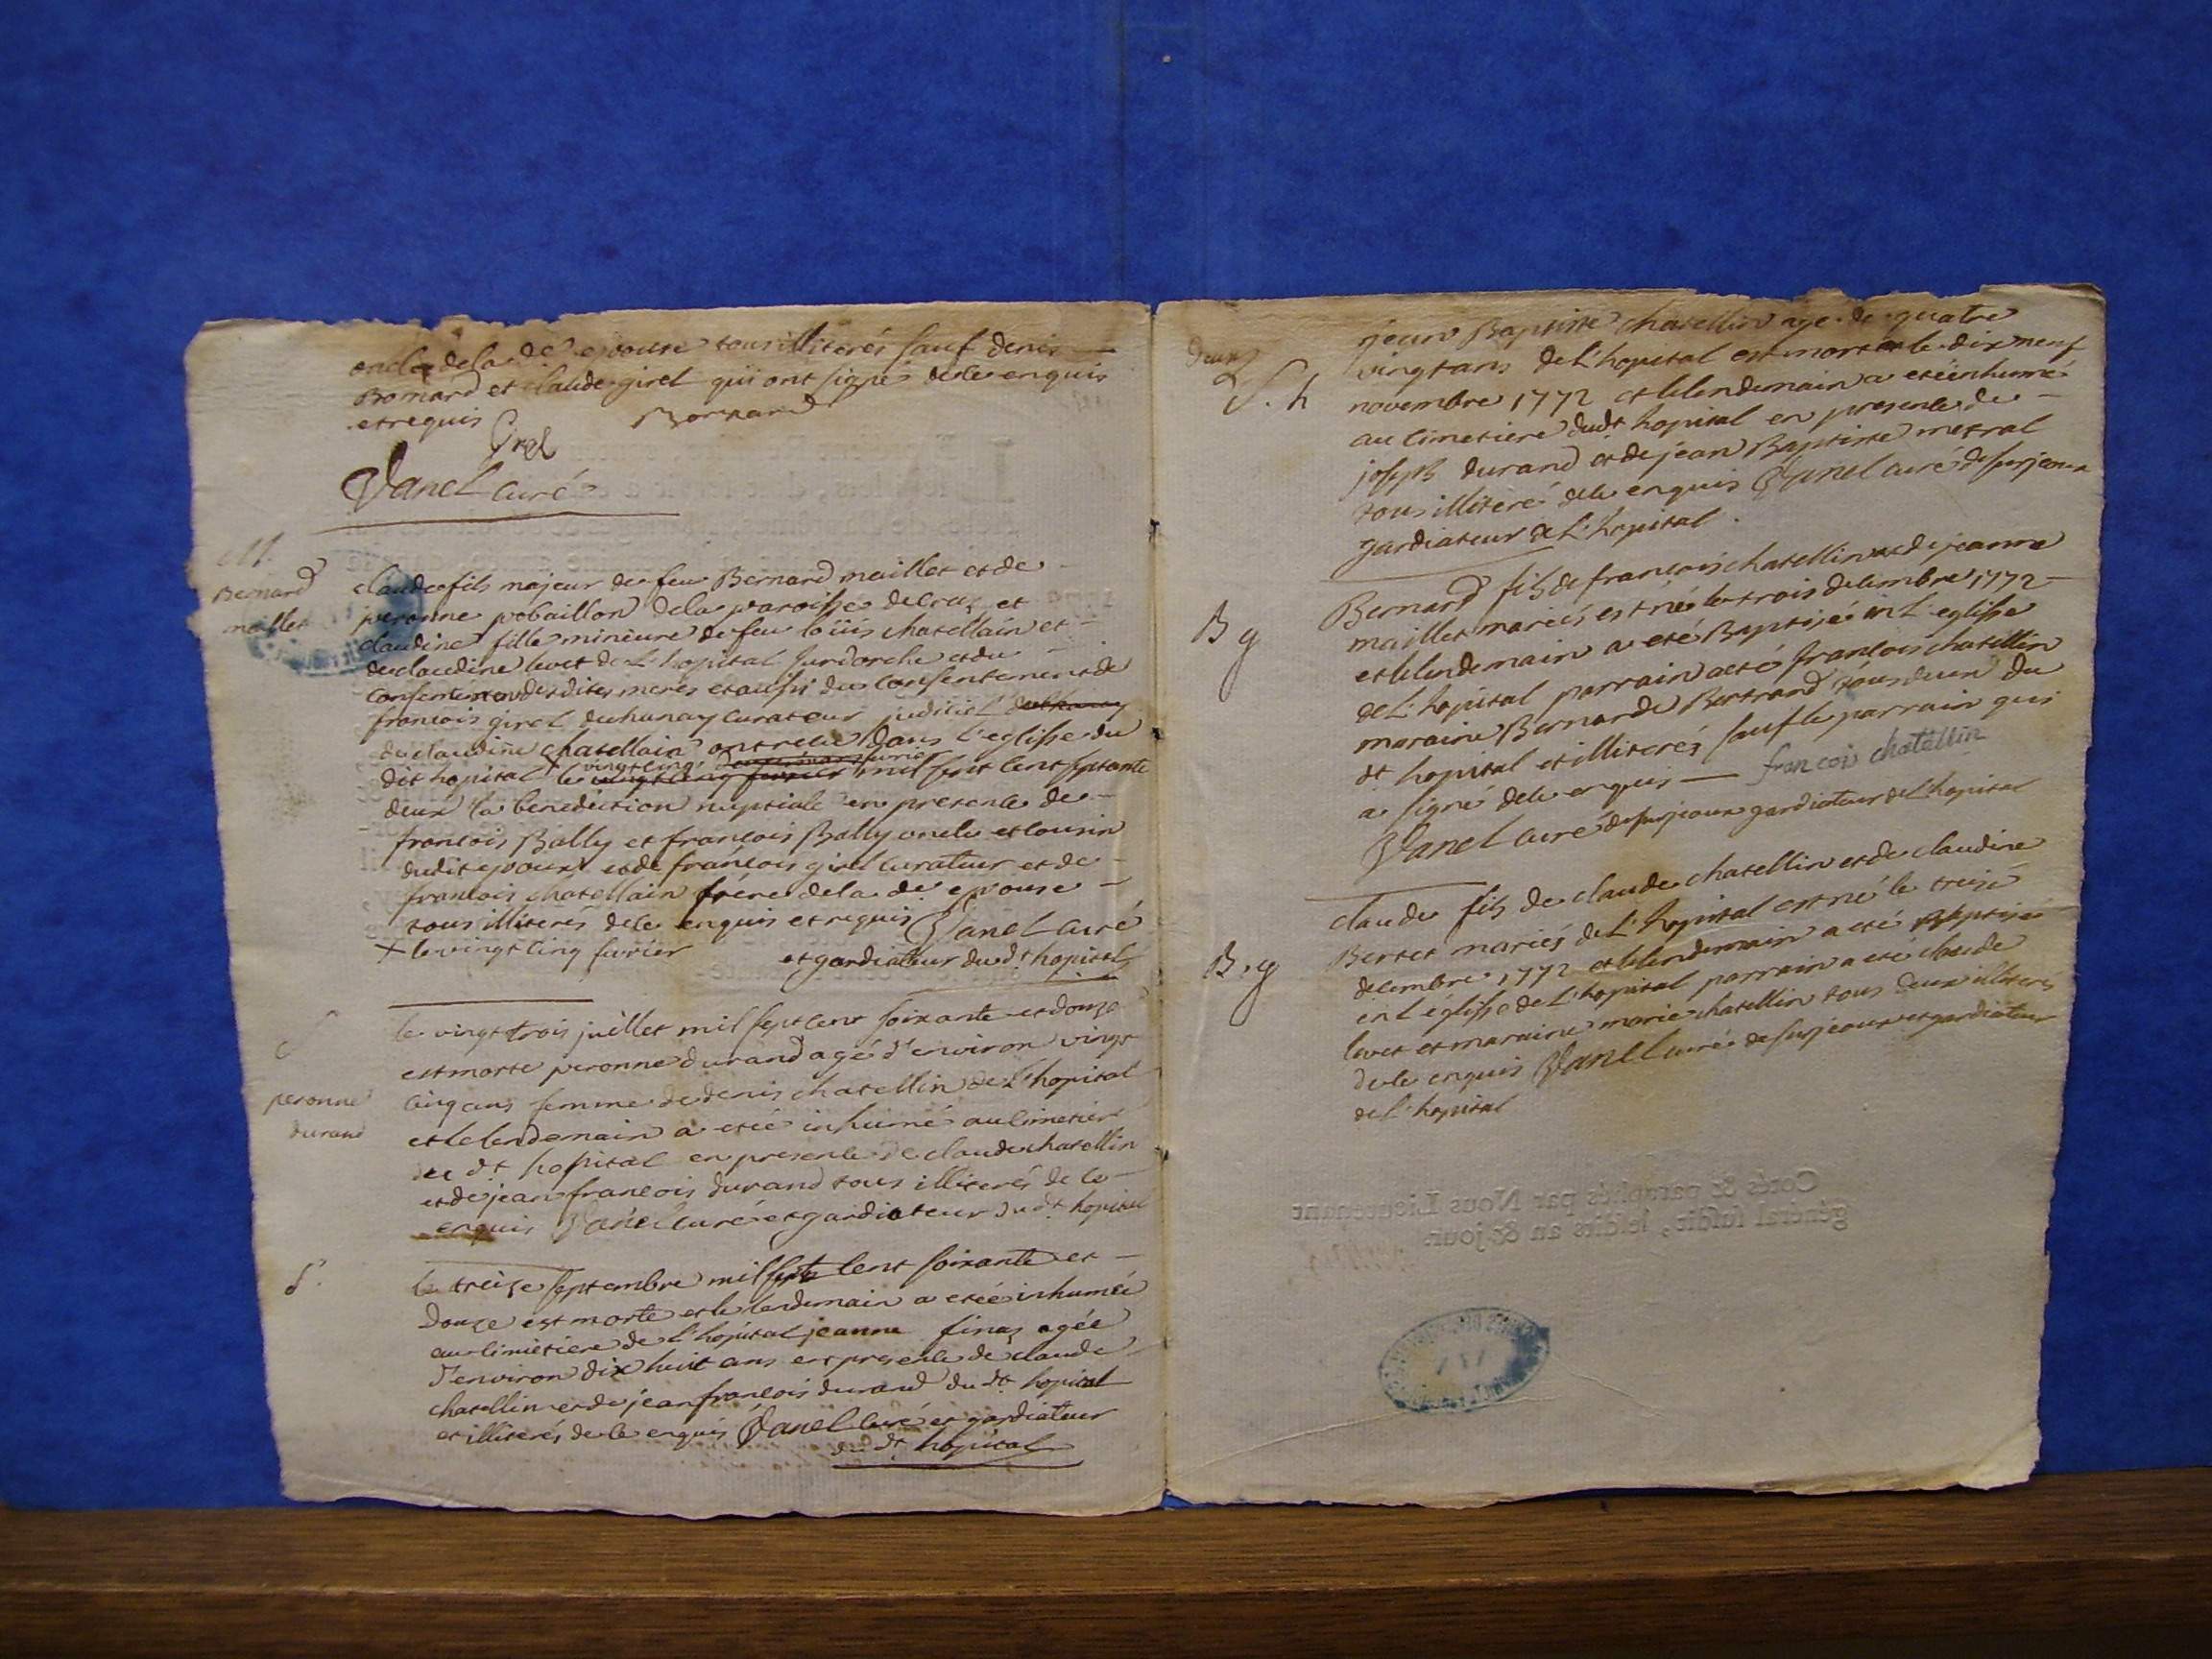 oncle de la de epouse tous illiterés sauf denis
Bornard et claude girel qui ont signé de ce enquis
et requis
Girel Bornard
Vanel curé
M.
Bernard
mallet
claude fils majeur de feu Bernard maillet et de
peronne pobaillon de la paroisse de cras et
claudine fille mineure de feu loüis chatellain et
de claudine levet de L'hopital surdorche et du
consentement desdites meres et aussi du consentement de
francois girel duhunay curateur judiciel
de claudine chatellain ont recu dans l'eglisse du
dit hopital + le vingt cinq fevrier mil sept cent septante
deux la benediction nuptiale en presence de
francois Bally et francois Bally oncle et cousin
dudit epoux et de francois girel curateur et de
francois chatellain frère de la de epouse
tous illiterés de ce enquis et requis Vanel curé
+ le vingt cinq fevrier et gardiateur du dt hopital
peronne
durand
le vingt trois juillet mil sept cent soixante et douze
est morte peronne durand agé d'environ vingt
cinq ans femme de denis chatellin de L'hopital
et le lendemain a etée inhumé au cimetiere
du dt hopital en presence de claude chatellin
et de jean francois durand tous illiterés de ce
enquis Vanel curé et gardiateur du dt hopital
S.
le treize septembre mil sept cent soixante et
douze est morte et le lendemain a etée inhumée
au cimetiere de l'hopital jeanne finas agée
d'environ dix huit ans en presence de claude
chatellin et de jean francois durand du dt hopital
et illiterés de ce enquis Vanel curé et gardiateur
du dt hopital
deux
S. h
jean Baptiste chatellin age de quatre
vingt ans de L'hopital est mort le dix neuf
novembre 1772 et le lendemain a eté inhumé
au cimetiere dudt hopital en presence de
joseph durand et de jean Baptiste metral
tous illiteré de ce enquis Vanel curé de surjoux
gardiateur de L'hopital.
B g
Bernard fils de francois chatellin et de jeanne
maillet mariés est né le trois decembre 1772
et le lendemain a eté Baptisé en L'eglisse
de L'hopital parrain a eté francois chatellin
maraine Bernarde Bertrand tous deux du
dt hopital et illiterés sauf le parrain qui
a signé de ce enquis francois chatellin
Vanel curé de surjoux gardiateur de L'hopital
B. g
claude fils de claude chatellin et de claudine
Bertet mariés de L'hopital est né le treise
decembre 1772 et le lendemain a eté Baptisé
en L'églisse de L'hopital parrain a eté claude
levet et maraine marie chatellin tous deux illiterés
de ce enquis Vanel curé de surjoux et gardiateur
de L'hopital
Cotés & paraphés par Nous Lieutenant
général susdit, lesdits an & jour.